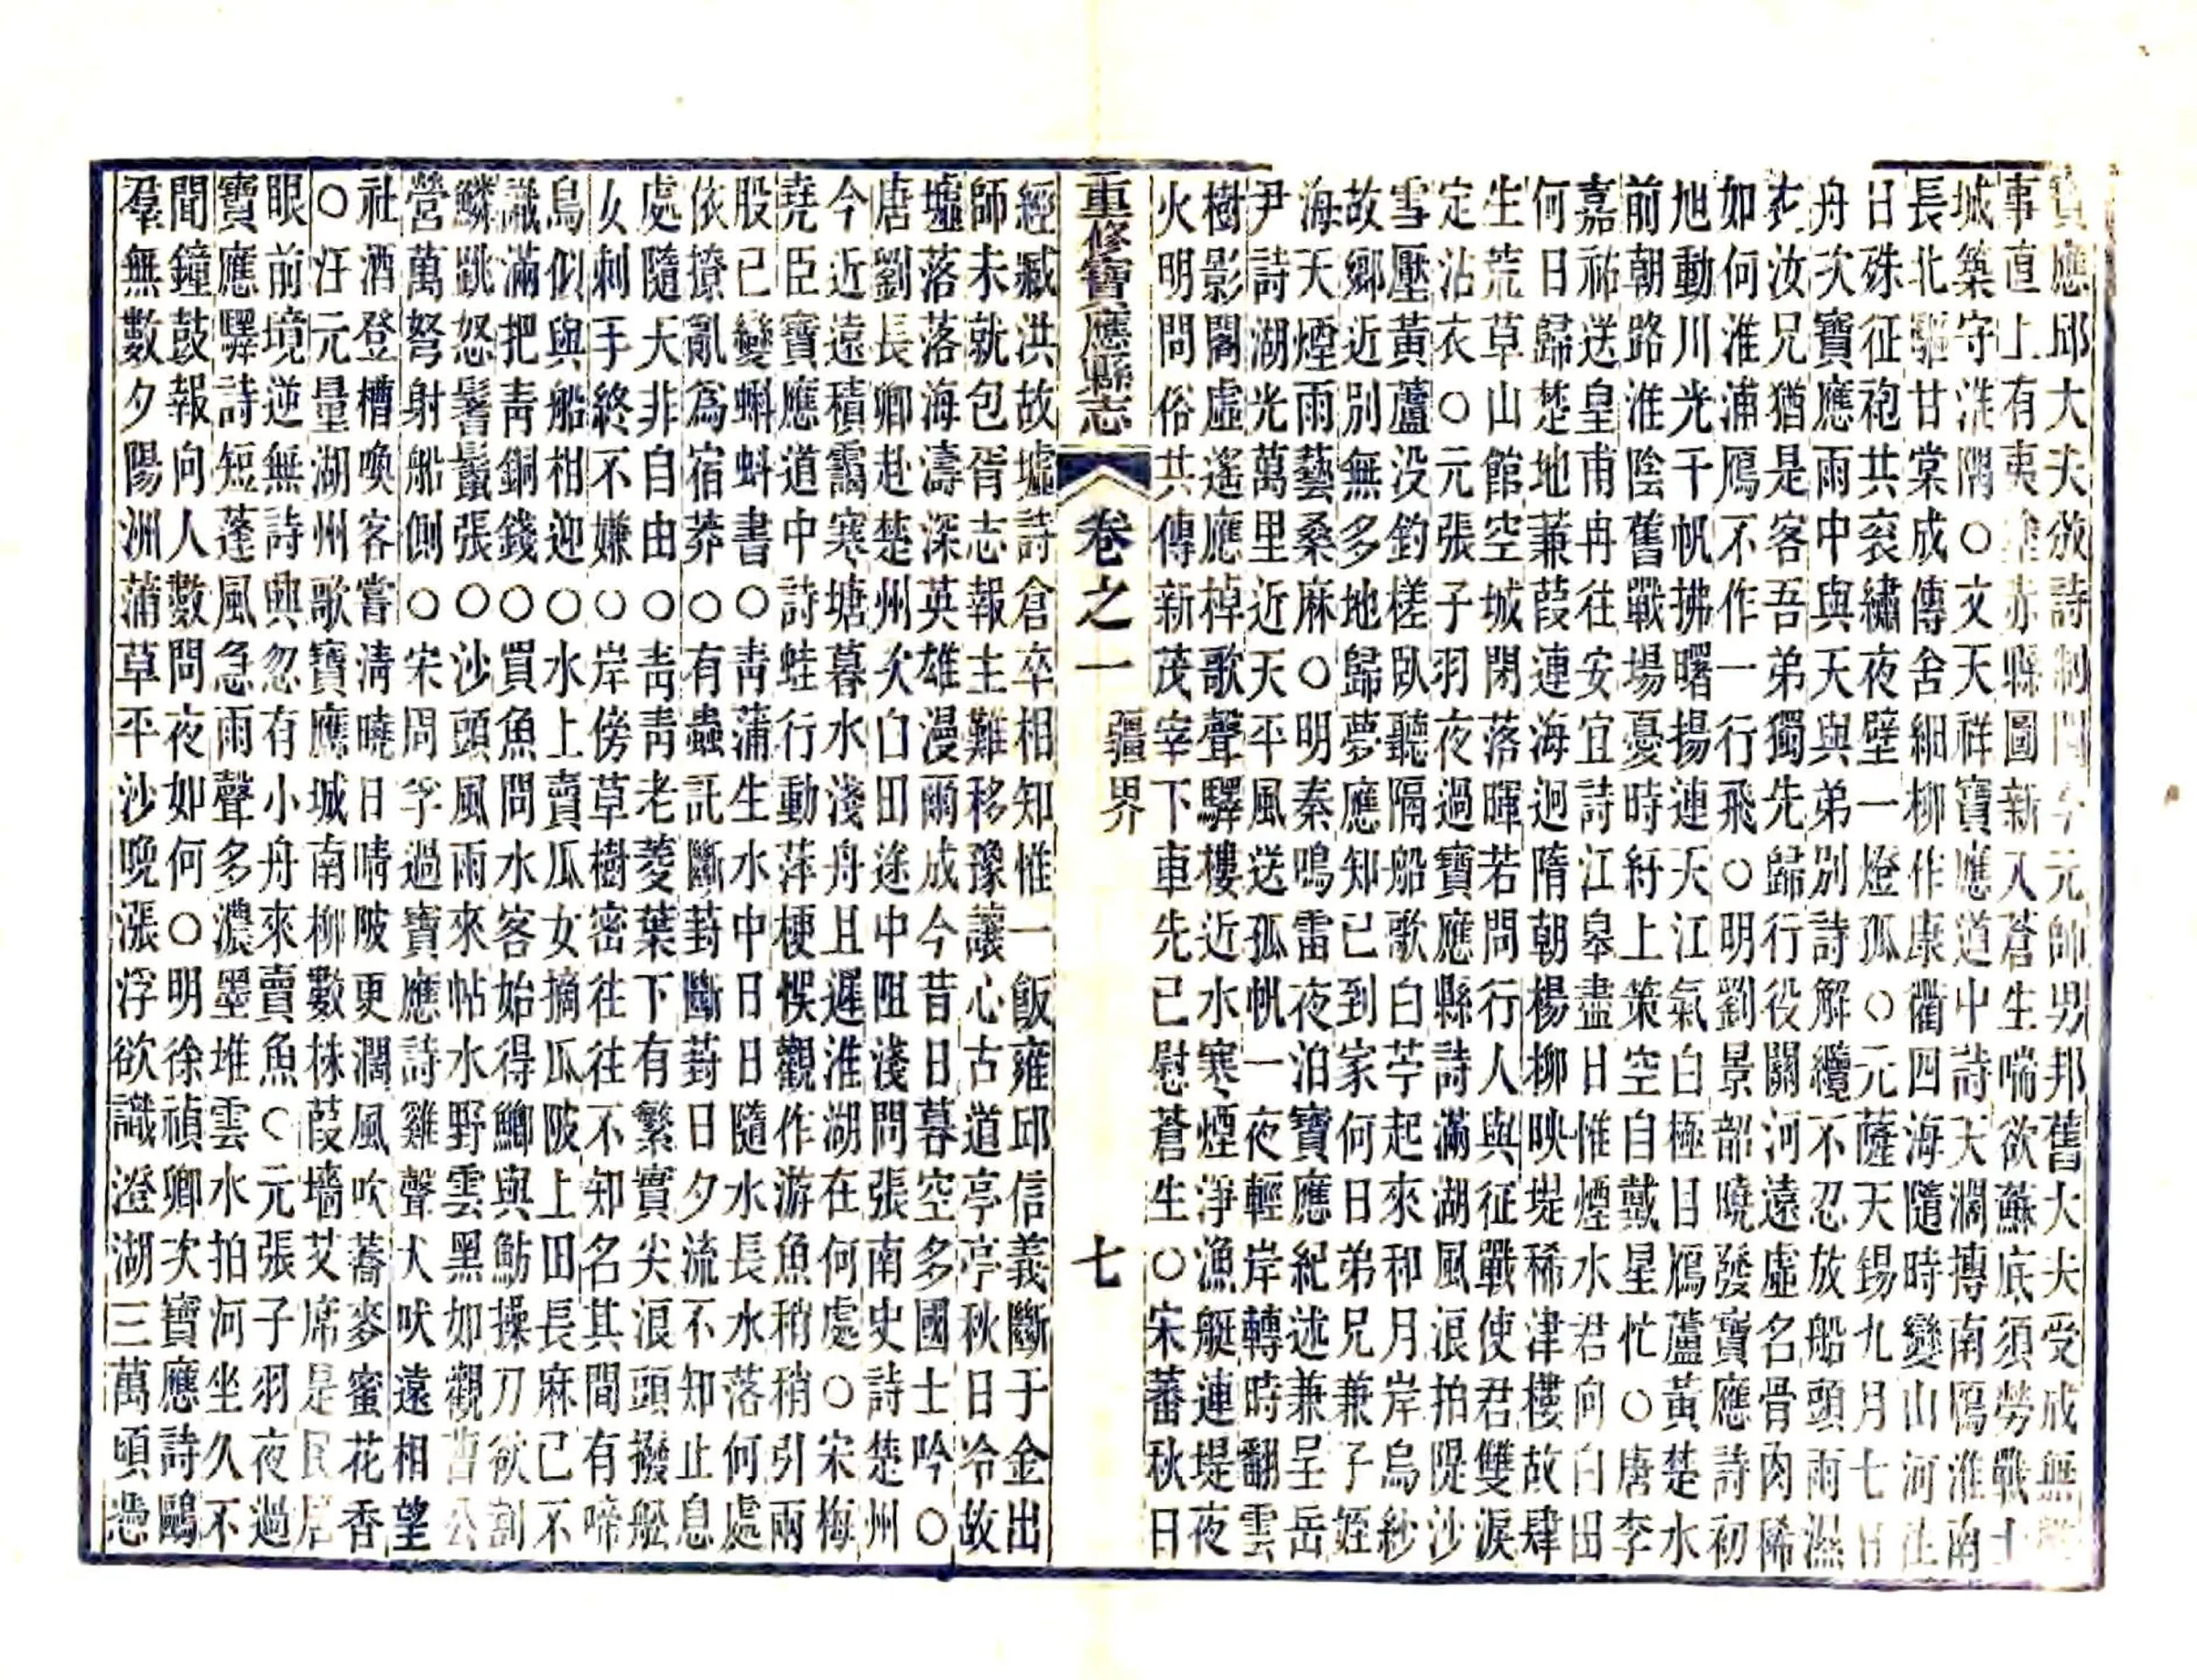 寶應邱大夫放詩制閫今元帥男邦舊大夫受成無
事直上有夷赤縣圖新入蒼生喘欲蘇底須勞戰士
城築守淮隅○文天祥寶應道中詩天濶摶南鴈淮南
長北驅甘棠成傳舍細柳作康衢四海隨時變山河
日殊征袍共衮繡夜壁一燈孤○元薩天錫九月七日
舟次寶應雨中與天與弟別詩解纜不忍放船頭雨濕
衣汝兄猶是客吾弟獨先歸行役關河遠虛名骨肉稀
如何淮浦鴈不作一行飛○明劉景韶曉發寶應詩初
旭動川光千帆拂曙揚連天江氣白極目鴈蘆黃楚水
前朝路淮陰舊戰場憂時紆上策空自戴星忙○唐李
嘉祐送皇甫冉往安宜詩江皋盡日惟煙水君向白田
何日歸楚地蒹葭連海迥隋朝楊柳映堤稀津樓故肆
生荒草山館空城閉落暉若問行人與征戰使君雙淚
定沾衣○元張子羽夜過寶應縣詩滿湖風浪拍隄沙
雪壓黃蘆没釣槎臥聽隔船歌白苧起來和月岸烏紗
故鄉近別無多地歸夢應知已到家何日弟兄兼子姪
海天煙雨藝桑麻○明秦鳴雷夜泊寶應紀述兼呈岳
尹詩湖光萬里近天平風送孤帆一夜輕岸轉時翻雲
樹影閣虛遙應棹歌聲驛樓近水寒煙淨漁艇連堤夜
火明問俗共傳新茂宰下車先已慰蒼生○宋蕃秋日
重修寶應縣志 卷之一 疆界 七
經臧洪故墟詩倉卒相知惟一飯雍邱信義斷于金出
師未就包胥志報主難移豫讓心古道亭亭秋日冷故
墟落落海濤深英雄漫爾成今昔日暮空多國士吟○
唐劉長卿赴楚州次白田途中阻淺問張南史詩楚州
今近遠積靄寒塘暮水淺舟且遲淮湖在何處○宋梅
堯臣寶應道中詩蛙行動萍梗悞觀作游魚稍稍引兩
股已變蝌蚪書○靑蒲生水中日日隨水長水落何處
依撩亂爲宿莽○有蟲託斷葑斷葑日夕流不知止息
處隨大非自由○靑靑老菱葉下有繁實尖浪頭撥舩
女刺手終不嫌○岸傍草樹密往往不知名其間有啼
鳥似與船相迎○水上賣瓜女摘瓜陂上田長麻已不
識滿把靑銅錢○買魚問水客始得鯽與鮎操刀欲割
鱗跳怒鬐鬣張○沙頭風雨來帖水野雲黑如觀曹公
營萬弩射船側○宋周孚過寶應詩雞聲犬吠遠相望
社酒登槽喚客嘗淸曉日晴陂更濶風吹蕎麥蜜花香
○汪元量湖州歌寶應城南柳數株葭墻艾席是民居
眼前境逆無詩興忽有小舟來賣魚○元張子羽夜過
寶應驛詩短蓬風急雨聲多濃墨堆雲水拍河坐久不
聞鐘鼓報向人數問夜如何○明徐禎卿次寶應詩鷗
羣無數夕陽洲蒲草平沙晚漲浮欲識澄湖三萬頃